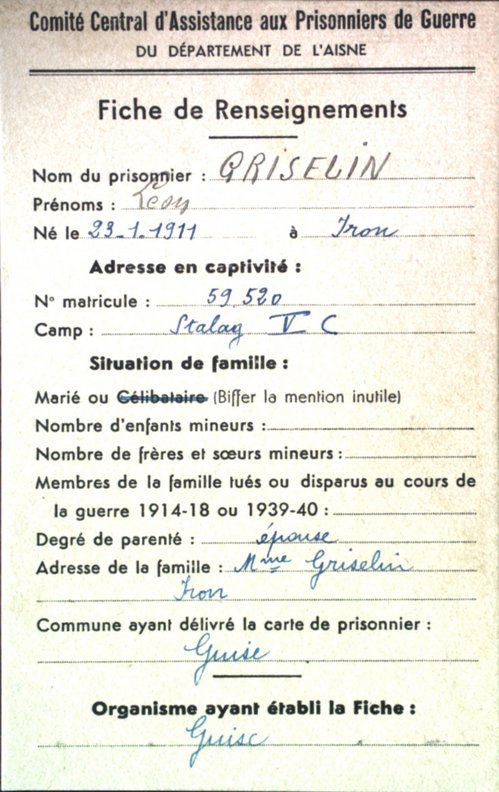 Comité Central d'Assistance aux Prisonniers de Guerre
DU DÉPARTEMENT DE L'AISNE
Fiche de Renseignements
Nom du prisonnier : GRISELIN
Prénoms : Léon
Né le 23-1-1911 à Iron
Adresse en captivité :
N° matricule : 59 520
Camp : Stalag V C
Situation de famille :
Marié ou Célibataire (Biffer la mention inutile)
Nombre d'enfants mineurs :
Nombre de frères et sœurs mineurs :
Membres de la famille tués ou disparus au cours de
la guerre 1914-18 ou 1939-40 :
Degré de parenté : épouse
Adresse de la famille : Mme Griselin
Iron
Commune ayant délivré la carte de prisonnier :
Guise
Organisme ayant établi la Fiche :
Guise